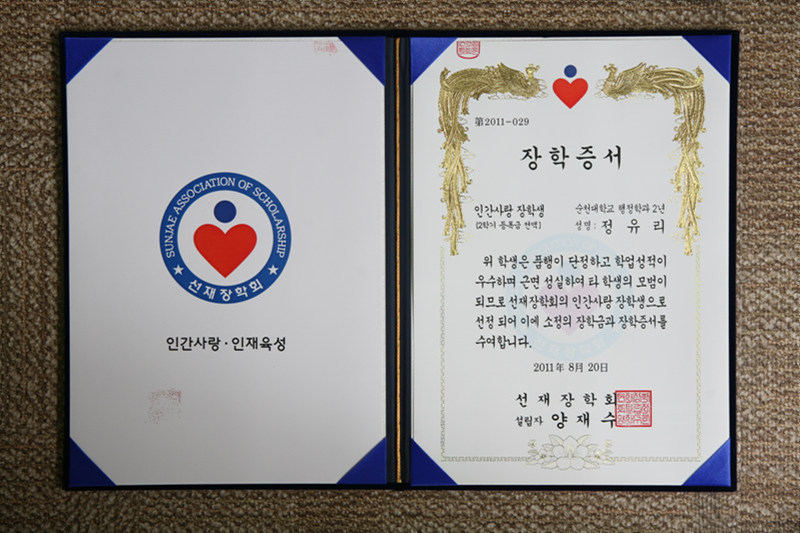 SUNJAE ASSOCIATION OF SCHOLARSHIP
선재장학회
인간사랑·인재육성
第2011-029
장학증서
인간사랑 장학생 순천대학교 행정학과 2년
(2학기 등록금 전액) 성명 : 정유리
위 학생은 품행이 단정하고 학업성적이
우수하며 근면 성실하여 타 학생의 모범이
되므로 선재장학회의 인간사랑 장학생으로
선정 되어 이에 소정의 장학금과 장학증서를
수여합니다.
2011年 8月 20日
선재장학회
설립자 양재수